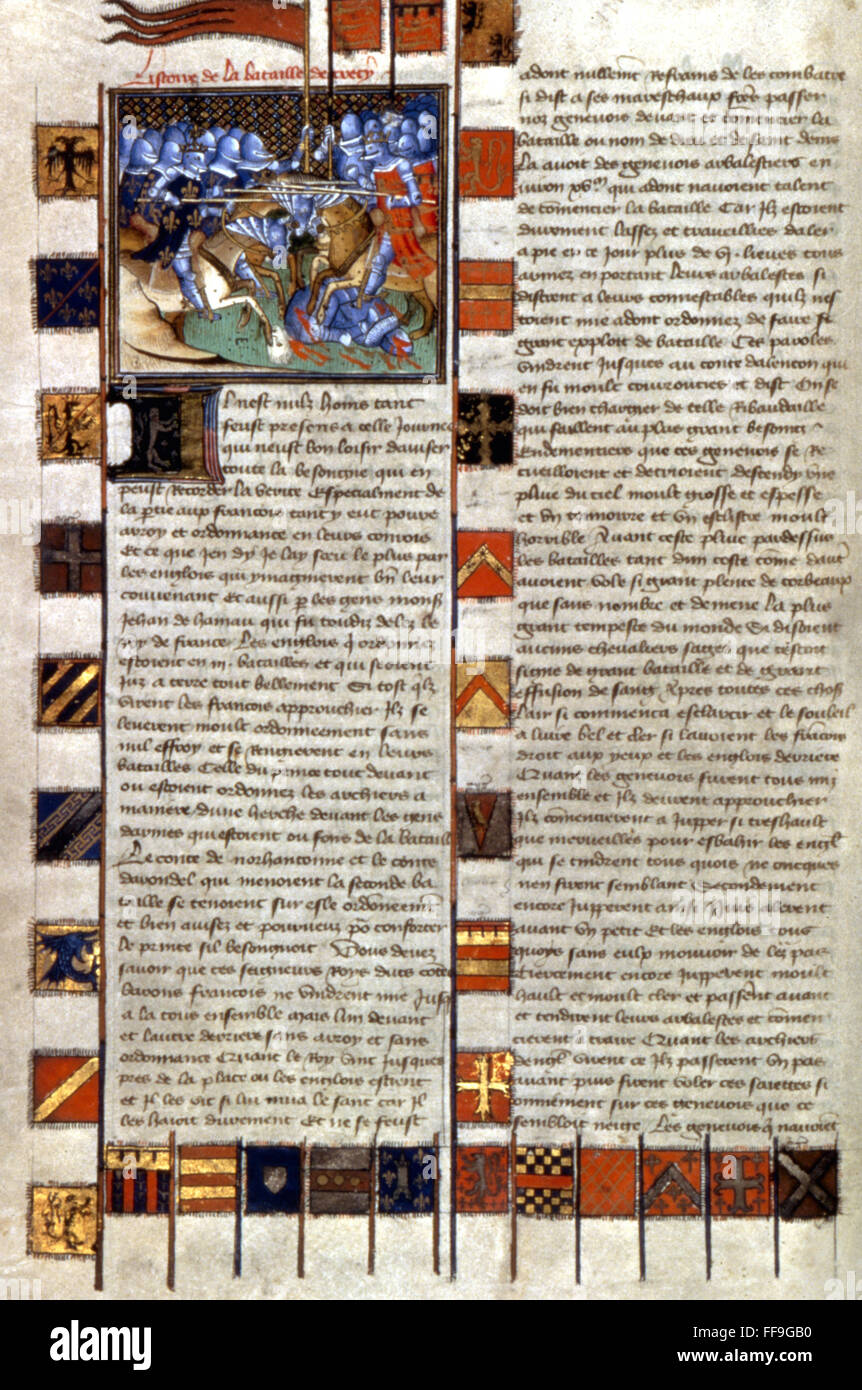 Listoire de la bataille de crecy
Il nest nulz homs tant
feust presens a celle journee
qui neust bon loisir daviser
toute la besongne qui en
peust recorder la verite Especialment de
la partie aux francois tant y eut povre
arroy et ordonnance en leurs conrois
Et ce que jen dy je lay sceu le plus par
les englois qui ymaginerent bien leur
couvenant Et aussi par les gens mons
Jehan de hainau qui fu toudiz delez le
roy de france Les englois qui ordonnez
estoient en iij batailles et qui seoient
jus a terre tout bellement Si tost quilz
virent les francois approuchier Ilz se
leverent moult ordonneement sans
nul effroy et se rengierent en leurs
batailles Celle du prince tout devant
ou estoient ordonnez les archiers a
maniere dune herche devant les gens
darmes qui estoient ou fons de la bataille
Le conte de norhantonne et le conte
darondel qui menoient la seconde ba
taille se tenoient sur esle ordonneement
et bien avisez et pourveuz pour conforter
le prince sil besongnoit Vous devez
savoir que ces seigneurs roys ducs contes
barons francois ne vindrent mie jusques
a la tous ensemble mais lun devant
et lautre derriere sans arroy et sans
ordonnance Quant le roy vint jusques
pres de la place ou les englois estoient
et il les vit si lui mua le sanc car il
les haioit durement Et ne se feust
adont nullement refrains de les combatre
si dist a ses mareschaux faites passer
noz genevois devant et commencier la
bataille ou nom de dieu et de saint denis
La avoit des genevois arbalestriers en
viron xvm qui adont navoient talent
de commencier la bataille Car ilz estoient
durement lassez et travelliez daler
a pie en ce jour plus de vi lieues tous
armez en portant leurs arbalestes si
distrent a leurs connestables quilz nes
toient mie adont ordonnez de faire si
grant exploit de bataille Ces paroles
vindrent jusques au conte dalencon qui
en fu moult courrouciez et dist On se
doit bien chargier de telle ribaudaille
qui faillent au plus grant besoing
Endementiers que ces genevois se re
cueilloient et detrioient descendy une
pluie du ciel moult grosse et espesse
et un tonnoirre et un esclistre moult
horrible Avant ceste pluie pardessus
les batailles tant dun coste comme dautre
avoient vole si grant plente de corbeaux
que sans nombre et demene la plus
grant tempeste du monde Si disoient
aucuns chevaliers sages que cestoit
signe de grant bataille et de grant
effusion de sang Apres toutes ces choses
lair si commenca esclarcir et le souleil
a luire bel et cler si lavoient les francois
droit aux yeux et les englois derriere
Quant les genevois furent tous mis
ensemble et ilz deurent approuchier
Ilz commencierent a jupper si treshault
que merveilles pour esbahir les englois
qui se tindrent tous quois ne oncques
nen firent semblant Secondement
encore jupperent ainsi puis alerent
avant un petit Et les englois tous
quoys sans eulx mouvoir de leur pas
Tiercement encore jupperent moult
hault et moult cler et passerent avant
et tendirent leurs arbalestes et commen
cierent a traire Quant les archiers
dengleterre virent ce ilz passerent un pas
avant puis firent voler ces saiettes si
onniement sur ces genevois que ce
sembloit neige Les genevois qui navoient
alamy
Image ID: FF9GB0
www.alamy.com